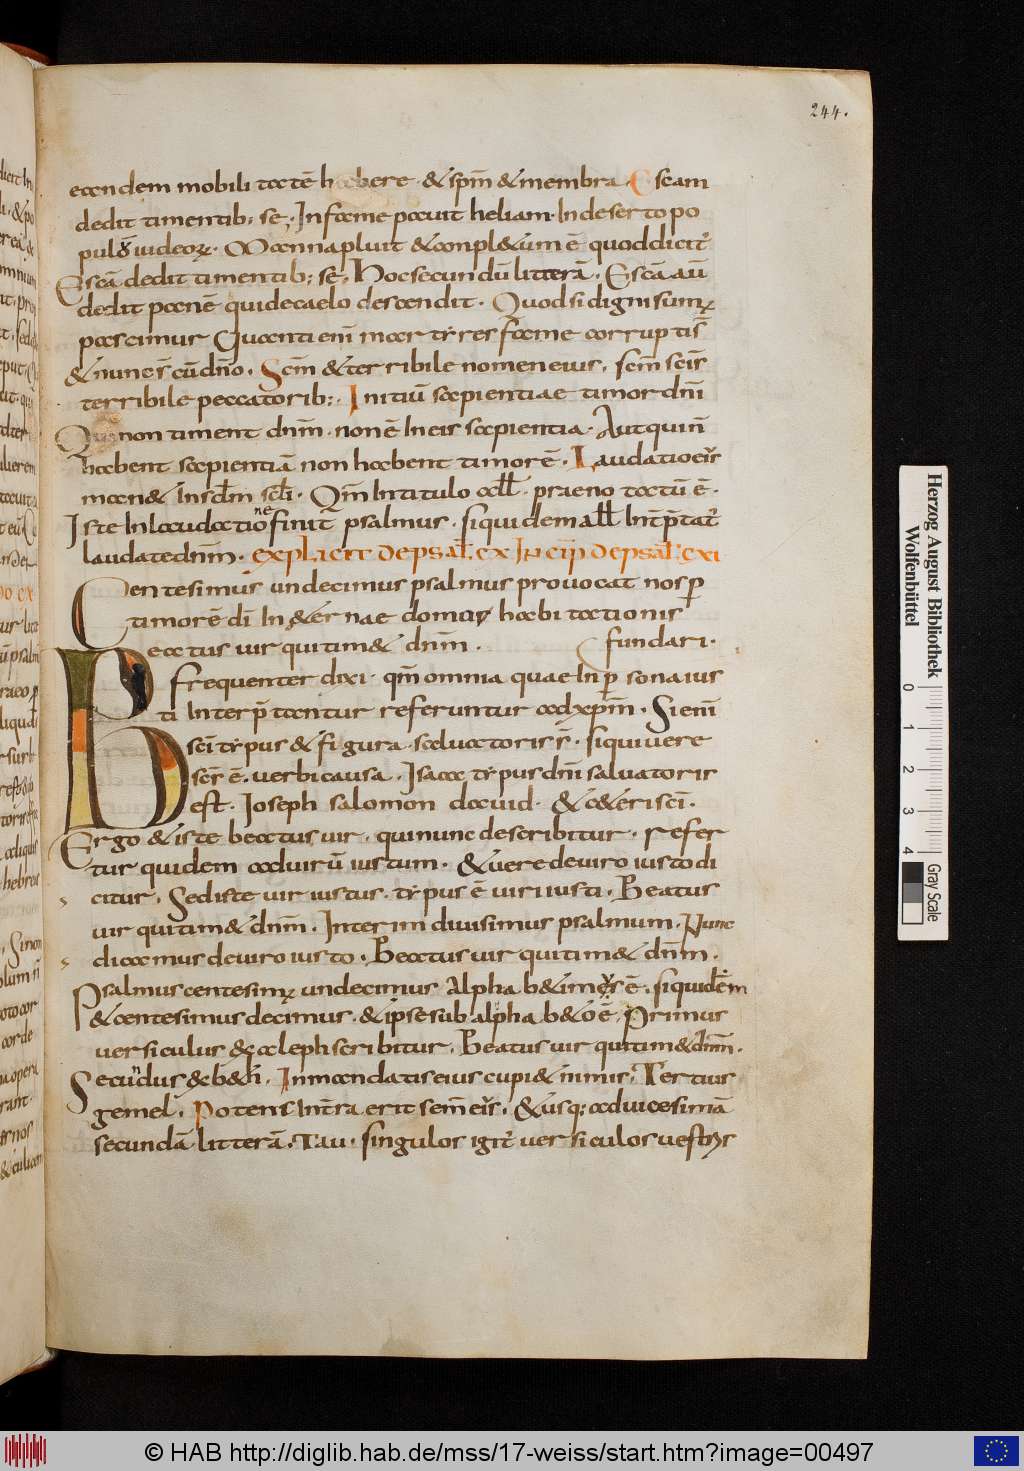 244.
eandem mobilitatē habere · & sp̄m & membra · Escam
dedit timentib; se; In fame pavit heliam · In deserto po
pulū iudeoꝝ · Manna pluit & conpl&um ē quod dicit̄
Escā dedit timentib; se · Hoc secundū litterā · Escā aū
dedit panē qui de caelo descendit · Quod si digni sumꝰ
pascimur Quanti enī martyres fame corruptis̄
& nunc s̄ cū dn̄o · Scm̄ & terribile nomen eius · scm̄ scīs
terribile peccatorib; · Initiū sapientiae timor dn̄i
Qui non timent dnm̄ · non ē In eis sapientia · Aut qui n̄
habent sapientiā non habent timorē · Laudatio eiꝰ
man& In sclm̄ scli · Qm̄ In titulo all · praenotatū ē ·
Iste In laudatione finit psalmus · siquidem all Int̄p̄tat̄
laudate dnm̄ · explicit de psal cx Incip de psal cxi
Centesimus undecimus psalmus provocat nos p̄
timorē dī In &ernae domus habitationis
Beatus vir qui tim& dnm̄ · fundari ·
frequenter dixi · qm̄ omnia quae In p̄sona ius
ti Interp̄tantur referuntur ad xp̄m · Si enī
scī typus & figura salvatoris s̄ · si qui vere
scs̄ ē · verbi causa · Isaac typus dn̄i salvatoris
est · Ioseph salomon david · & c&eri scī ·
Ergo & iste beatus vir · qui nunc describitur · refer
tur quidem ad virū iustum · & vere de viro iusto di
citur · Sed iste vir iustus · typus ē viri iusti · Beatus
vir qui tim& dnm̄ · Interim divisimus psalmum · Nunc
dicamus de viro iusto · Beatus vir qui tim& dnm̄ ·
Psalmus centesimꝰ undecimus Alphab&i mꝰ ē · siquidēm
& centesimus decimus · & ipse sub alphab&o ē · Primus
versiculus & aleph scribitur · Beatus vir qui tim& dnm̄ ·
Secundus & b&h · In mandatis eius cupi& nimis · Tertius
gemel · Potens In t̄ra erit sem̄ eiꝰ · & usq; ad vicesimā
secundā litterā · Tau · singulos igit̄ versiculos vestris
Herzog August Bibliothek
Wolfenbüttel
0 1 2 3 4
Gray Scale
© HAB http://diglib.hab.de/mss/17-weiss/start.htm?image=00497